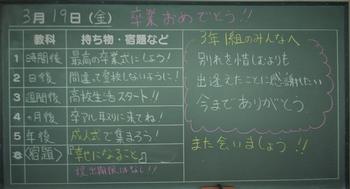 3月19日(金) 卒業おめでとう!!
教科 持ち物・宿題など
1 時間後 最高の卒業式にしよう!
2 日後 間違って登校しないように!
3 週間後 高校生活スタート!!
4 ヶ月後 卒アル取りに来てね!
5 年後 成人式で集まろう!
〈宿題〉『幸せになること』
提出期限はなし!!
3年 組のみんなへ
別れを惜しむよりも
出逢えたことに感謝したい
今までありがとう
また会いましょう!!